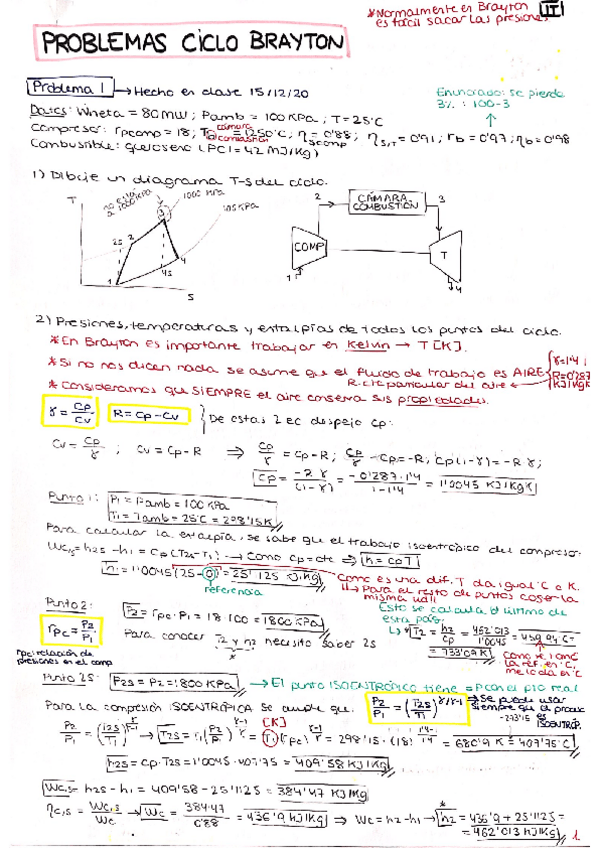 *Normalmente en Brayton
es fácil sacar las presiones
IT
PROBLEMAS CICLO BRAYTON
Problema 1 → Hecho en clase 15/12/20
Enunciado: se pierde
3% : 100-3
Datos: Wneta = 80MW; Pamb = 100 KPa; T=25ºC
cámara
combustión
Compresor: rpcomp = 18; T = 1250ºC; η scomp = 0'88; ηs,T = 0'91; rb = 0'97; ηb = 0'98
Combustible: queroseno (PCI = 42 MJ/Kg)
1) Dibuje un diagrama T-s del ciclo.
T
1000 KPa
2s
2
3
4s
4
1
S
2
CÁMARA
COMBUSTIÓN
3
COMP
T
1
4
2) Presiones, temperaturas y entalpías de todos los puntos del ciclo.
*En Brayton es importante trabajar en Kelvin → T[K].
*Si no nos dicen nada se asume que el fluido de trabajo es AIRE
γ=1'4
R=0'287 KJ/KgK
R=cte particular del aire
*Consideramos que SIEMPRE el aire conserva sus propiedades.
γ = Cp/Cv
R = Cp - Cv
De estas 2 ec despejo Cp:
Cv = Cp/γ ; Cv = Cp-R ⇒ Cp/γ = Cp-R; Cp/γ - Cp = -R; Cp(1-γ) = -Rγ;
Cp = -Rγ/(1-γ) = -0'287·1'4/(1-1'4) = 1'0045 KJ/KgK
Punto 1: P1 = Pamb = 100 KPa
T1 = Tamb = 25ºC = 298'15K
Para calcular la entalpía, se sabe que el trabajo isoentrópico del compresor:
Wc,s = h2s - h1 = Cp(T2s-T1) → Como Cp=cte ⇒ h = CpT
h1 = 1'0045(25-0) = 25'1125 KJ/Kg
referencia
Como es una dif. T da igual ºC o K.
Para el resto de puntos coger la
misma ud!!
Punto 2: P2 = rpc·P1 = 18·100 = 1800 KPa
rpc = P2/P1
Para conocer T2 y h2 necesito saber 2s
*
rpc: relación de
presiones en el comp
Esto se calcula el último de
este paso.
*T2 = h2/Cp = 462'013/1'0045 = 459'94ºC =
= 733'09 K
Como tomé
la ref. en ºC,
me lo da en ºC
Punto 2s: P2s = P2 = 1800 KPa → El punto ISOENTRÓPICO tiene = P con el pto real
Para la compresión ISOENTRÓPICA se cumple que:
P2/P1 = (T2s/T1)^γ/γ-1
Se puede usar
siempre que el proceso
es
ISOENTRÓP.
P2/P1 = (T2s/T1)^γ/γ-1 → T2s = T1(P2/P1)^γ-1/γ = T1(rpc)^γ-1/γ = 298'15·(18)^1'4-1/1'4 = 680'9 K = 407'75ºC
[K]
-273'15
h2s = Cp·T2s = 1'0045·407'75 = 409'58 KJ/Kg
Wc,s = h2s - h1 = 409'58 - 25'1125 = 384'47 KJ/Kg
ηc,s = Wc,s/Wc → Wc = 384'47/0'88 = 436'9 KJ/Kg ⇒ Wc = h2-h1 → h2 = 436'9 + 25'1125 =
*
= 462'013 KJ/Kg
1